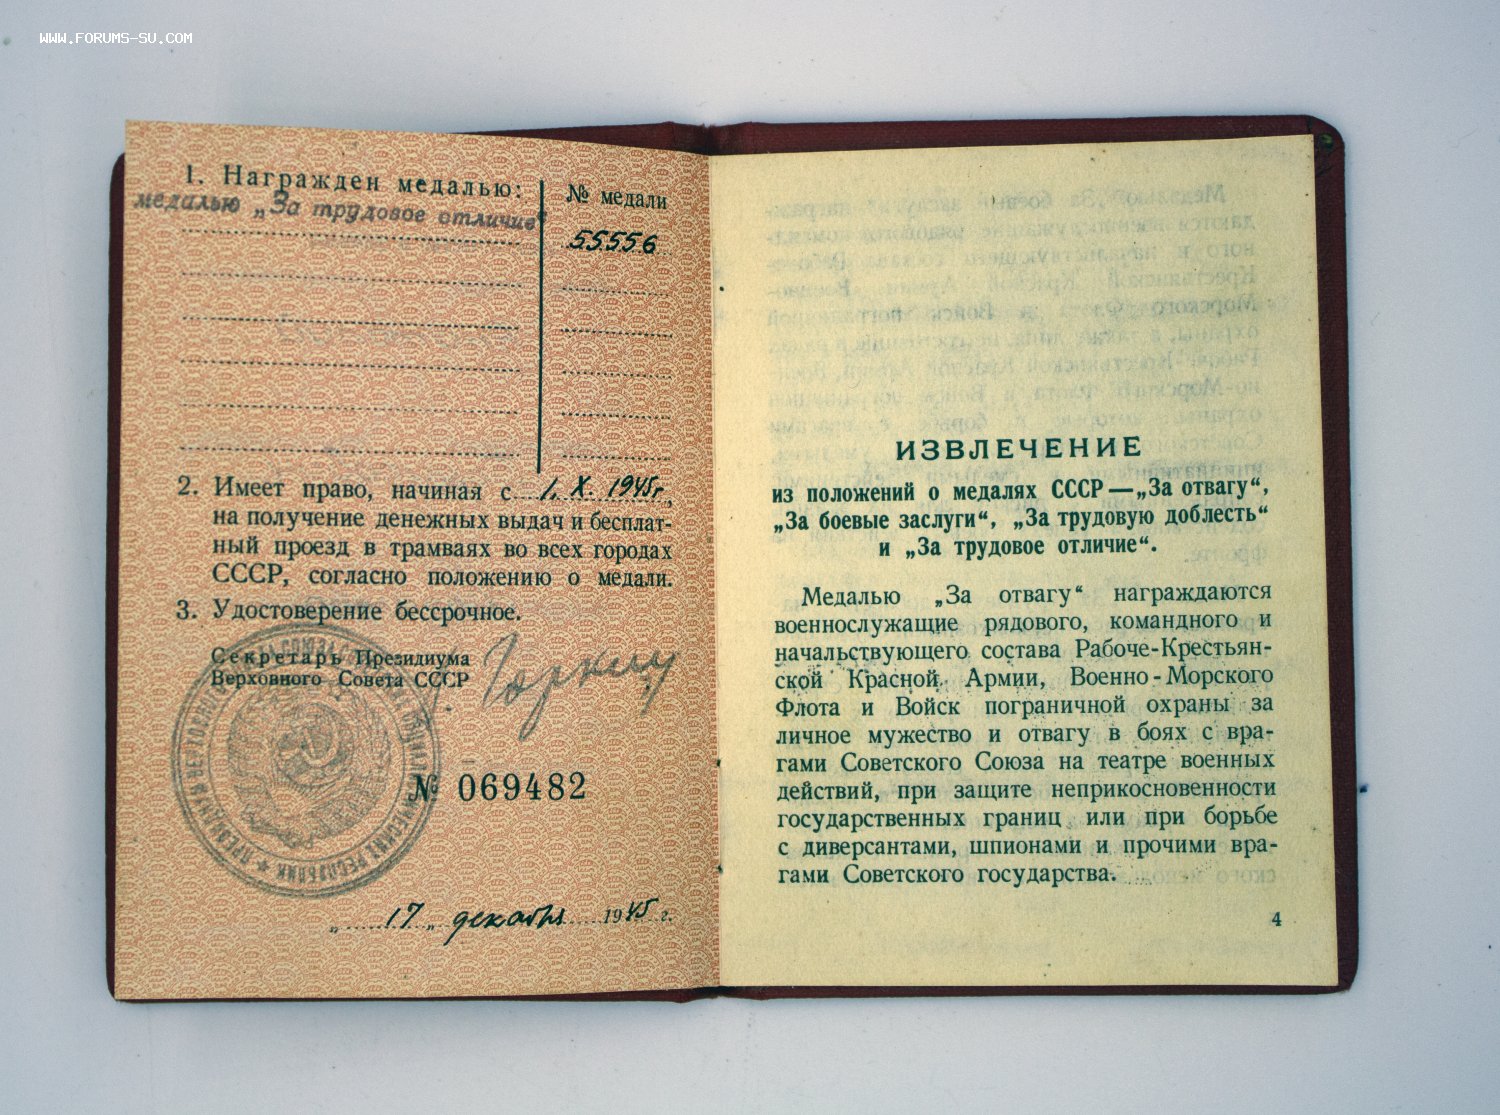 WWW.FORUMS-SU.COM
1. Награжден медалью:
медалью „За трудовое отличие“
№ медали
55556
2. Имеет право, начиная с 1. X. 1945г,
на получение денежных выдач и бесплат-
ный проезд в трамваях во всех городах
СССР, согласно положению о медали.
3. Удостоверение бессрочное.
Секретарь Президиума
Верховного Совета СССР
Горкин
№ 069482
„17„ декабря 1945 г.
ИЗВЛЕЧЕНИЕ
из положений о медалях СССР—„За отвагу“,
„За боевые заслуги“, „За трудовую доблесть“
и „За трудовое отличие“.
Медалью „За отвагу“ награждаются
военнослужащие рядового, командного и
начальствующего состава Рабоче-Крестьян-
ской Красной Армии, Военно-Морского
Флота и Войск пограничной охраны за
личное мужество и отвагу в боях с вра-
гами Советского Союза на театре военных
действий, при защите неприкосновенности
государственных границ или при борьбе
с диверсантами, шпионами и прочими вра-
гами Советского государства.
4